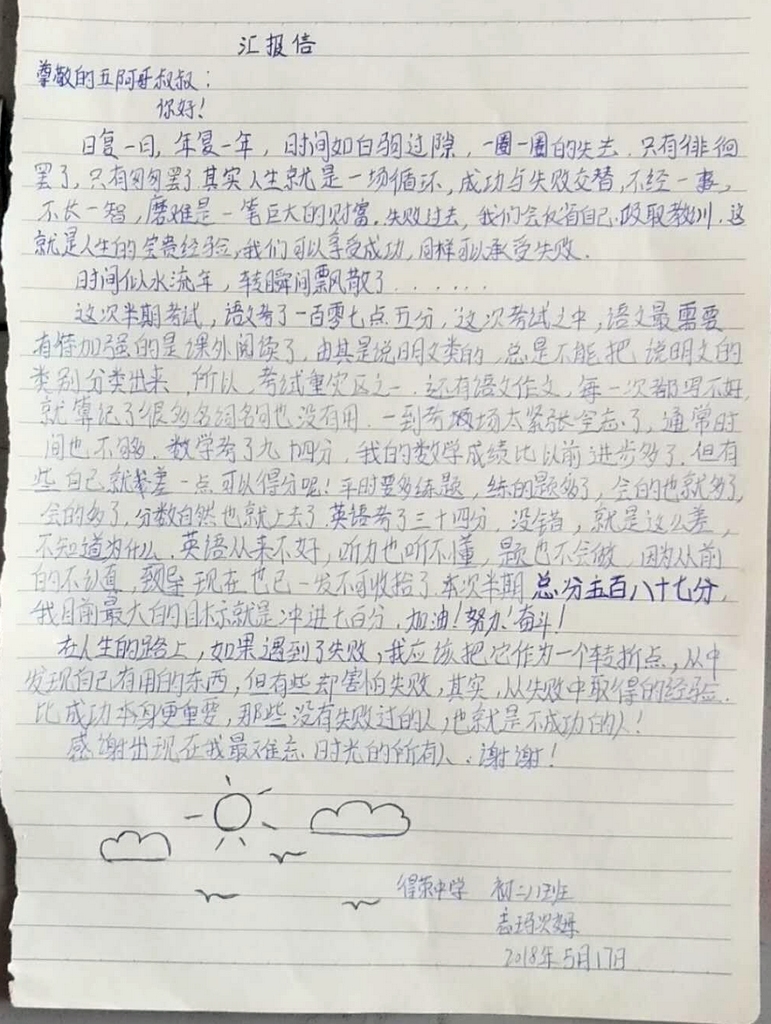 汇报信
尊敬的五阿哥叔叔：
你好！
日复一日，年复一年，时间如白驹过隙，一圈一圈的失去，只有徘徊
罢了，只有匆匆罢了其实人生就是一场循环，成功与失败交替，不经一事，
不长一智，磨难是一笔巨大的财富，失败过去，我们会反省自己，吸取教训，这
就是人生的宝贵经验，我们可以享受成功，同样可以承受失败．
时间似水流年，转瞬间飘散了．．．．．．
这次半期考试，语文考了一百零七点五分，这次考试之中，语文最需要
有待加强的是课外阅读了，由其是说明文类的，总是不能把说明文的
类别分类出来，所以，考试重灾区之一．还有语文作文，每一次都写不好，
就算记了很多名词名句也没有用．一到考场太紧张全忘了，通常时
间也不够．数学考了九十四分，我的数学成绩比以前进步多了．但有
些自己就差一点可以得分呢！平时要多练题，练的题多了，会的也就多了，
会的多了，分数自然也就上去了．英语考了三十四分，没错，就是这么差，
不知道为什么，英语从来不好，听力也听不懂，题也不会做，因为从前
的不认真，致导现在也已一发不可收拾了．本次半期总分五百八十七分，
我目前最大的目标就是冲进七百分，加油！努力！奋斗！
在人生的路上，如果遇到了失败，我应该把它作为一个转折点，从中
发现自己有用的东西，但有些却害怕失败，其实，从失败中取得的经验．
比成功本身更重要，那些没有失败过的人，也就是不成功的人！
感谢出现在我最难忘时光的所有人．谢谢！
得荣中学 初二八班
志玛次姆
2018年5月17日